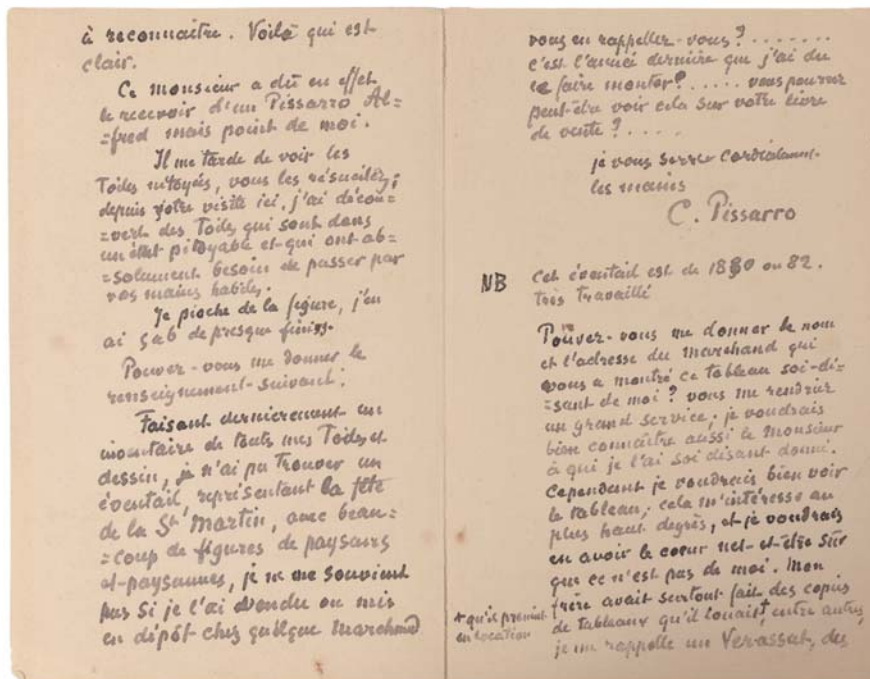 à reconnaitre. Voilà qui est
clair.
Ce monsieur a dû en effet
le recevoir d'un Pissarro Al=
=fred mais point de moi.
Il me tarde de voir les
Toiles nétoyées, vous les résuscitez;
depuis votre visite ici, j'ai décou=
=vert des Toiles qui sont dans
un état pitoyable et qui ont ab=
=solument besoin de passer par
vos mains habiles.
Je pioche de la figure, j'en
ai 5 a 6 de presque finies.
Pouvez-vous me donner le
renseignement suivant:
Faisant dernierement un
inventaire de touts mes Toiles et
dessin, je n'ai pu trouver un
éventail, représentant la fête
de la St Martin, avec beau=
=coup de figures de paysans
et paysannes, je ne me souvient
pas si je l'ai vendu ou mis
en dépôt chez quelque marchand
vous en rappellez-vous? ........
c'est l'année dernière que j'ai du
le faire monter? ..... vous pourrez
peut-être voir cela sur votre livre
de vente? ....
je vous serre cordialement
les mains
C. Pissarro
NB Cet éventail est de 1880 ou 82.
très travaillé
Pouvez-vous me donner le nom
et l'adresse du marchand qui
vous a montré ce tableau soi-di=
=sant de moi? vous me rendriez
un grand service; je voudrais
bien connaître aussi le Monsieur
à qui je l'ai soi disant donné.
Cependant je voudrais bien voir
le tableau, cela m'intéresse au
plus haut degrès, et je voudrais
en avoir le coeur net et être sûr
que ce n'est pas de moi. Mon
frère avait surtout fait des copies
de tableaux qu'il louait +, entre autres
je me rappelle un Verassat, des
+ qu'il prenait
en location